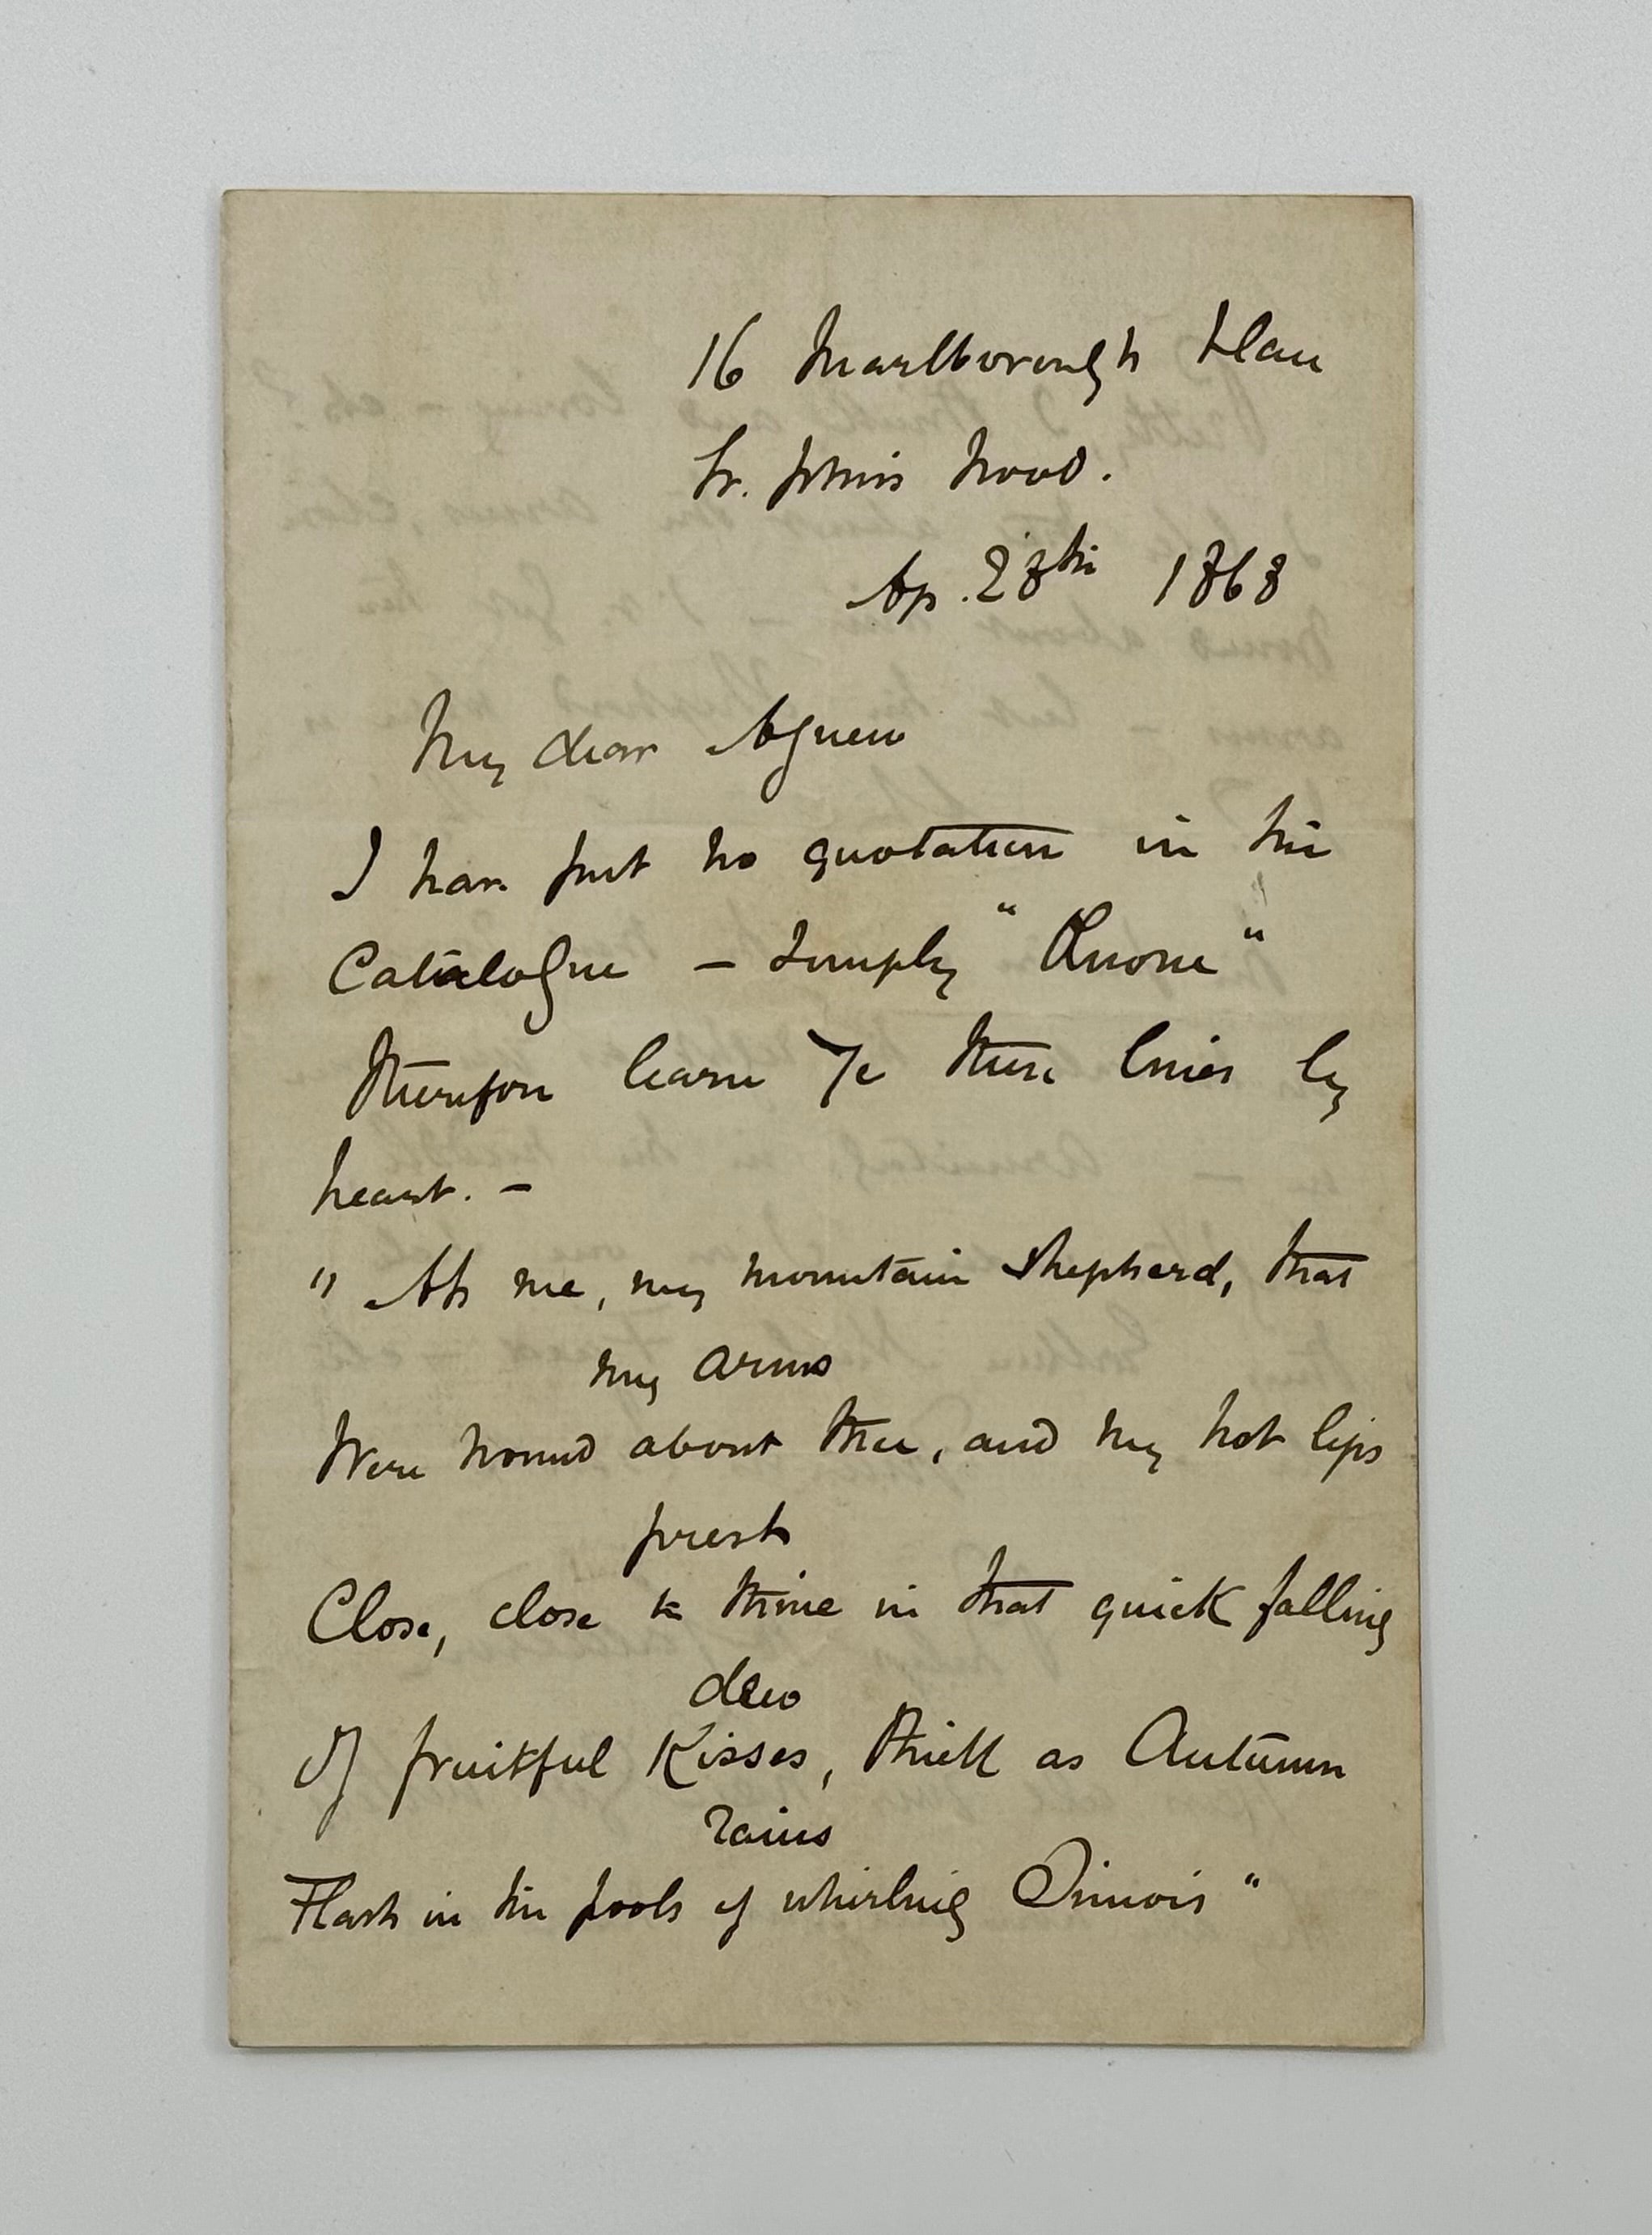 16 Marlborough Place
St. John's Wood.
Ap. 28th 1868
My dear Agnew
I have put no quotation in the
Catalogue – simply "Œnone"
therefore learn ye these lines by
heart. –
"Ah me, my mountain shepherd, that
my arms
Were wound about thee, and my hot lips
prest
Close, close to thine in that quick falling
dew
Of fruitful Kisses, thick as Autumn
rains
Flash in the pools of whirling Simois"